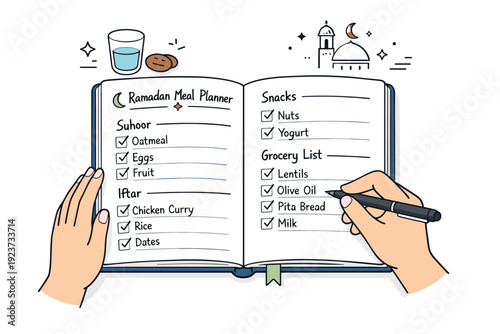 Ramadan Meal Planner
Suhoor
Oatmeal
Eggs
Fruit
Iftar
Chicken Curry
Rice
Dates
Snacks
Nuts
Yogurt
Grocery List
Lentils
Olive Oil
Pita Bread
Milk
Adobe Stock | #1923733714